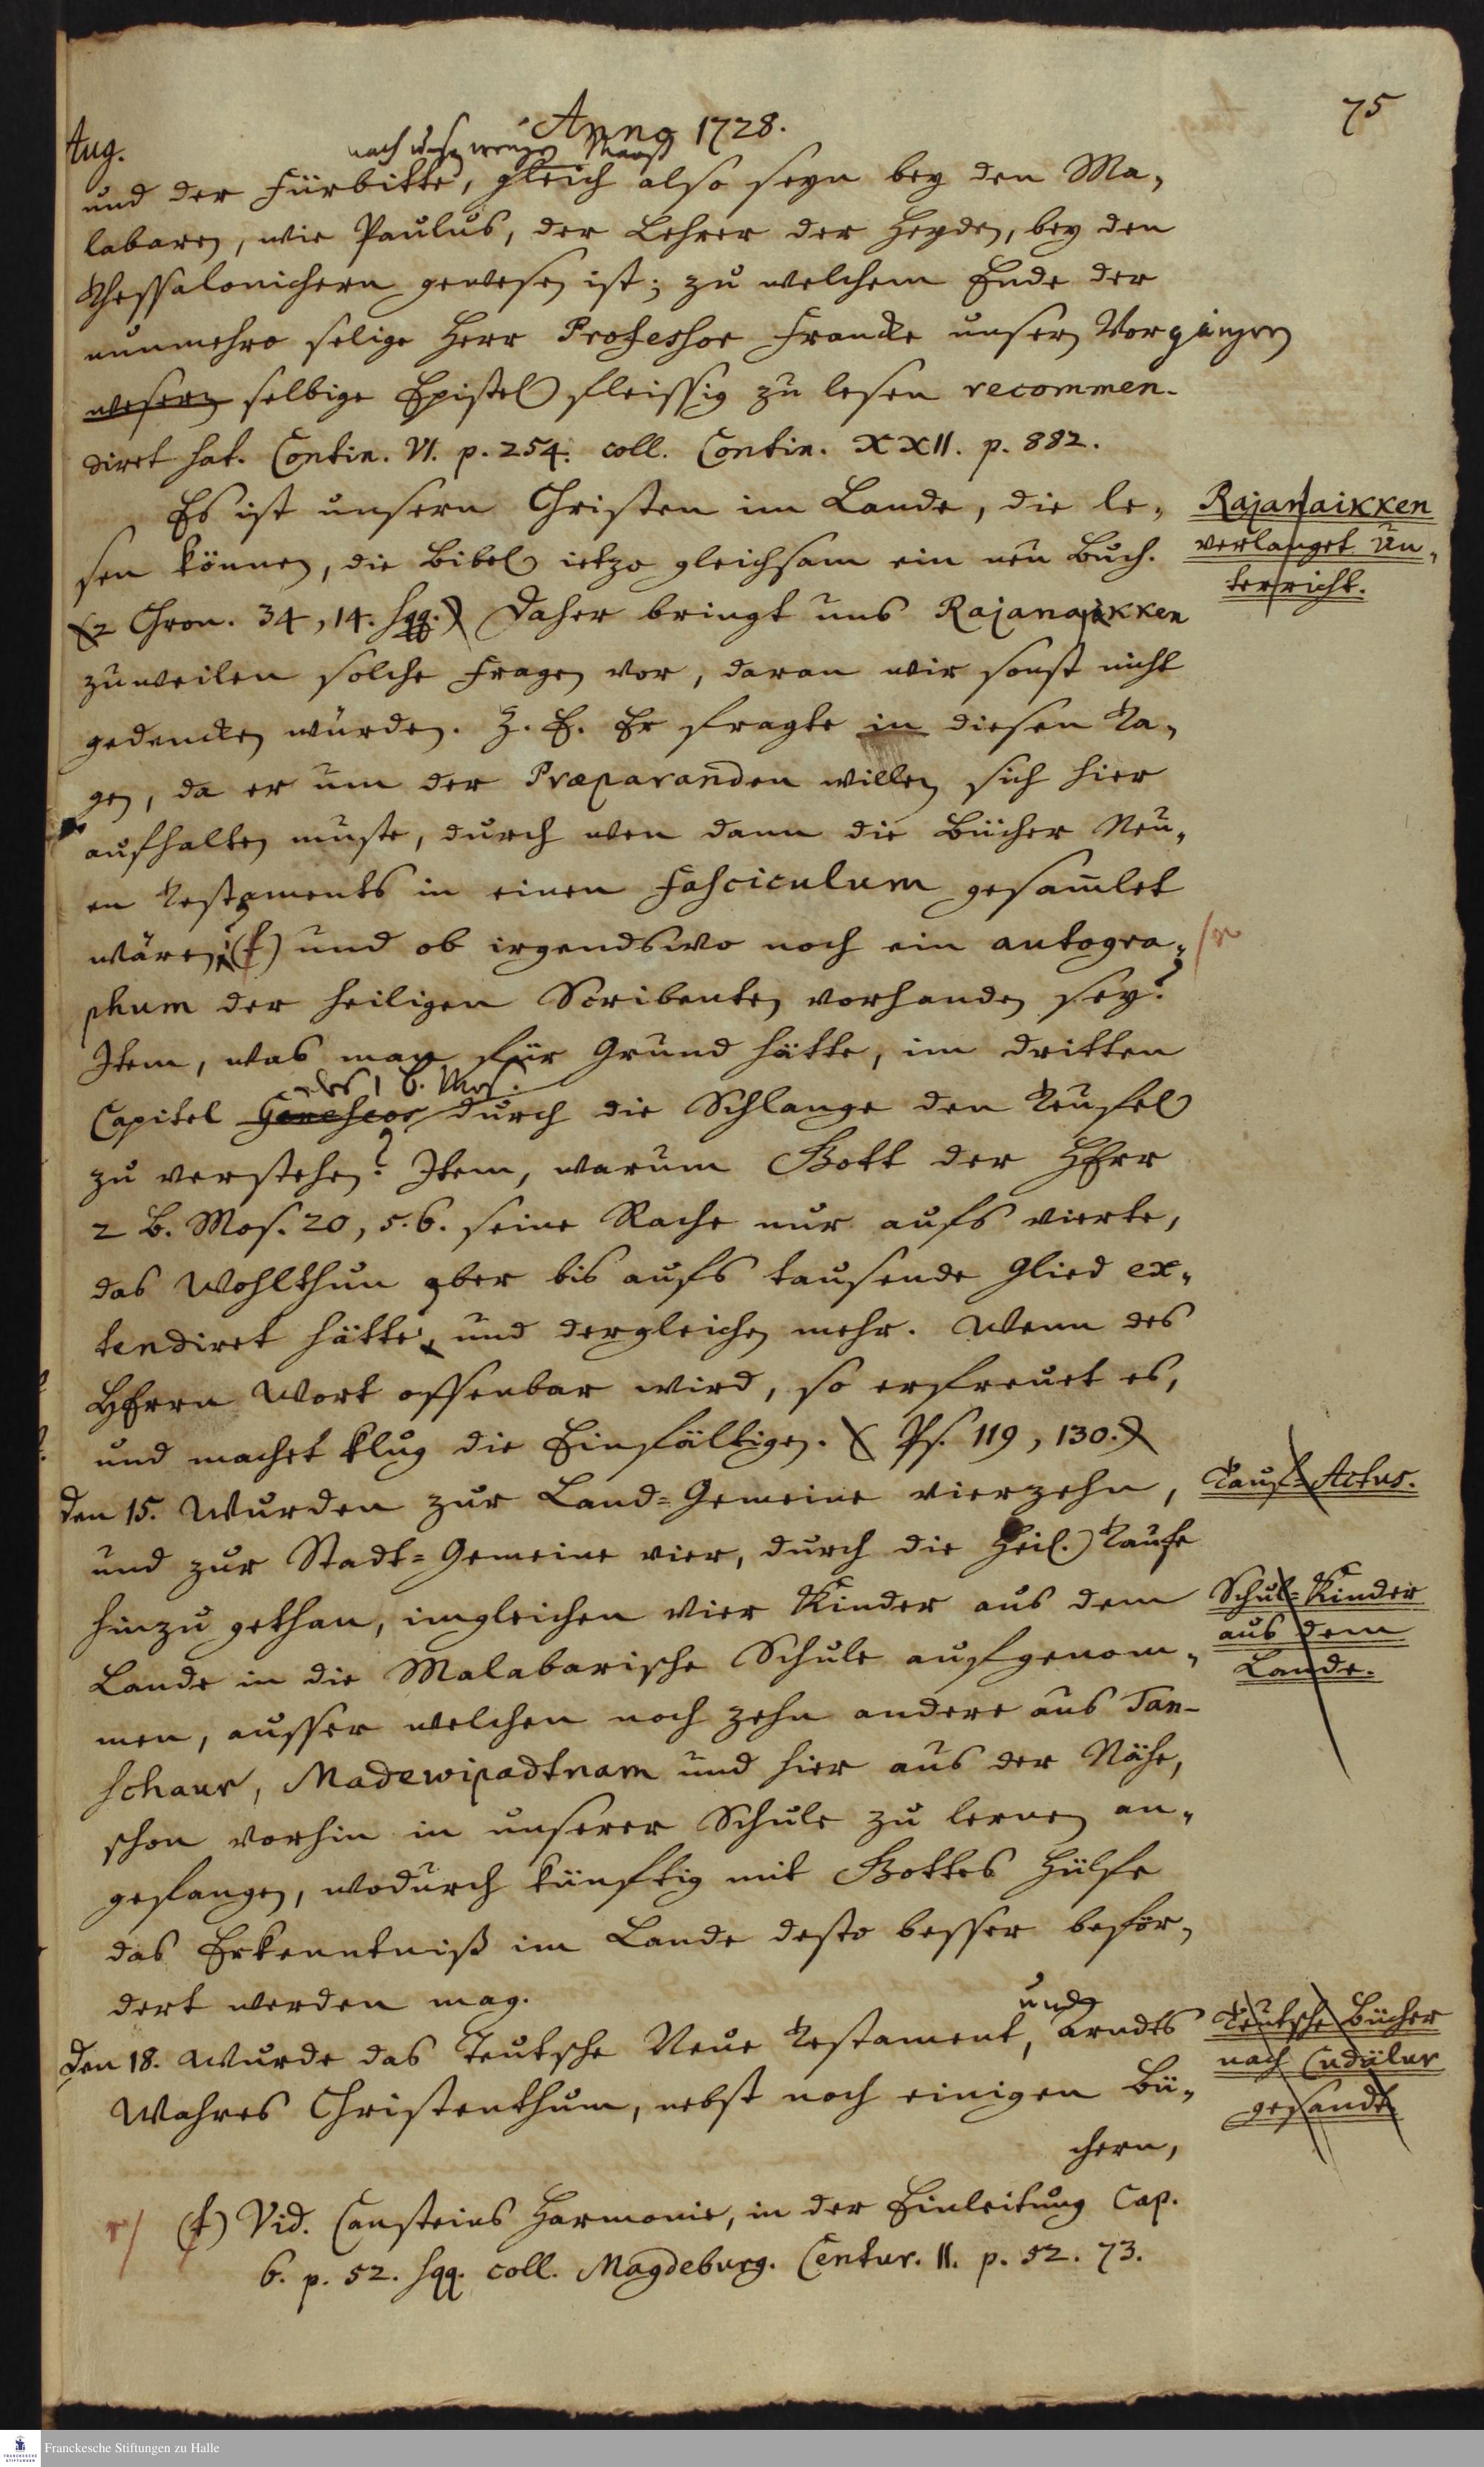 75
Anno 1728.
Aug.
nach unser wenigen Maaß
und der Fürbitte, gleich also seyn bey den Ma-
labaren, wie Paulus, der Lehrer der Heyden, bey den
Thessalonichern gewesen ist; zu welchem Ende der
nunmehro selige Herr Professor Francke unsern Vorgängern
selbige Epistel fleissig zu lesen recommen-
diret hat. Contin. VI. p. 254. coll. Contin. XXII. p. 882.
Es ist unsern Christen im Lande, die le-
sen können, die Bibel ietzo gleichsam ein neu Buch.
(2 Chron. 34, 14. sqq.) Daher bringt uns Rajanaikken
zuweilen solche Fragen vor, daran wir sonst nicht
gedencken würden. Z. E. Er fragte in diesen Ta-
gen, da er um der Præparanden willen sich hier
aufhalten muste, durch wen dann die Bücher Neu-
en Testaments in einen Fasciculum gesamlet
wären? (f) und ob irgendswo noch ein autogra-
phum der heiligen Scribenten vorhanden sey?
Item, was man für Grund hätte, im dritten
des 1 B. Mos.
Capitel Geneseos durch die Schlange den Teufel
zu verstehen? Item, warum Gott der HErr
2 B. Mos. 20, 5.6. seine Rache nur aufs vierte,
das Wohlthun aber bis aufs tausende Glied ex-
tendiret hätte, und dergleichen mehr. Wenn des
HErrn Wort offenbar wird, so erfreuet es,
und machet klug die Einfältigen. (Ps. 119, 130.)
Den 15. Wurden zur Land-Gemeine vierzehn,
und zur Stadt-Gemeine vier, durch die Heil. Taufe
hinzu gethan, imgleichen vier Kinder aus dem
Lande in die Malabarische Schule aufgenom-
men, ausser welchen noch zehn andere aus Tan-
schaur, Madewipadtnam und hier aus der Nähe,
schon vorhin in unserer Schule zu lernen an-
gefangen, wodurch künftig mit Gottes Hülfe
das Erkenntniß im Lande desto besser beför-
dert werden mag.
und
Den 18. Wurde das Teutsche Neue Testament, Arndts
Wahres Christenthum, nebst noch einigen Bü-
chern,
(f) Vid. Cansteins Harmonie, in der Einleitung Cap.
6. p. 52. sqq. coll. Magdeburg. Centur. II. p. 52. 73.
Rajanaikken
verlanget Un-
terricht.
Tauf-Actus.
Schul-Kinder
aus dem
Lande.
Teutsche Bücher
nach Cudälur
gesandt.
Franckesche Stiftungen zu Halle